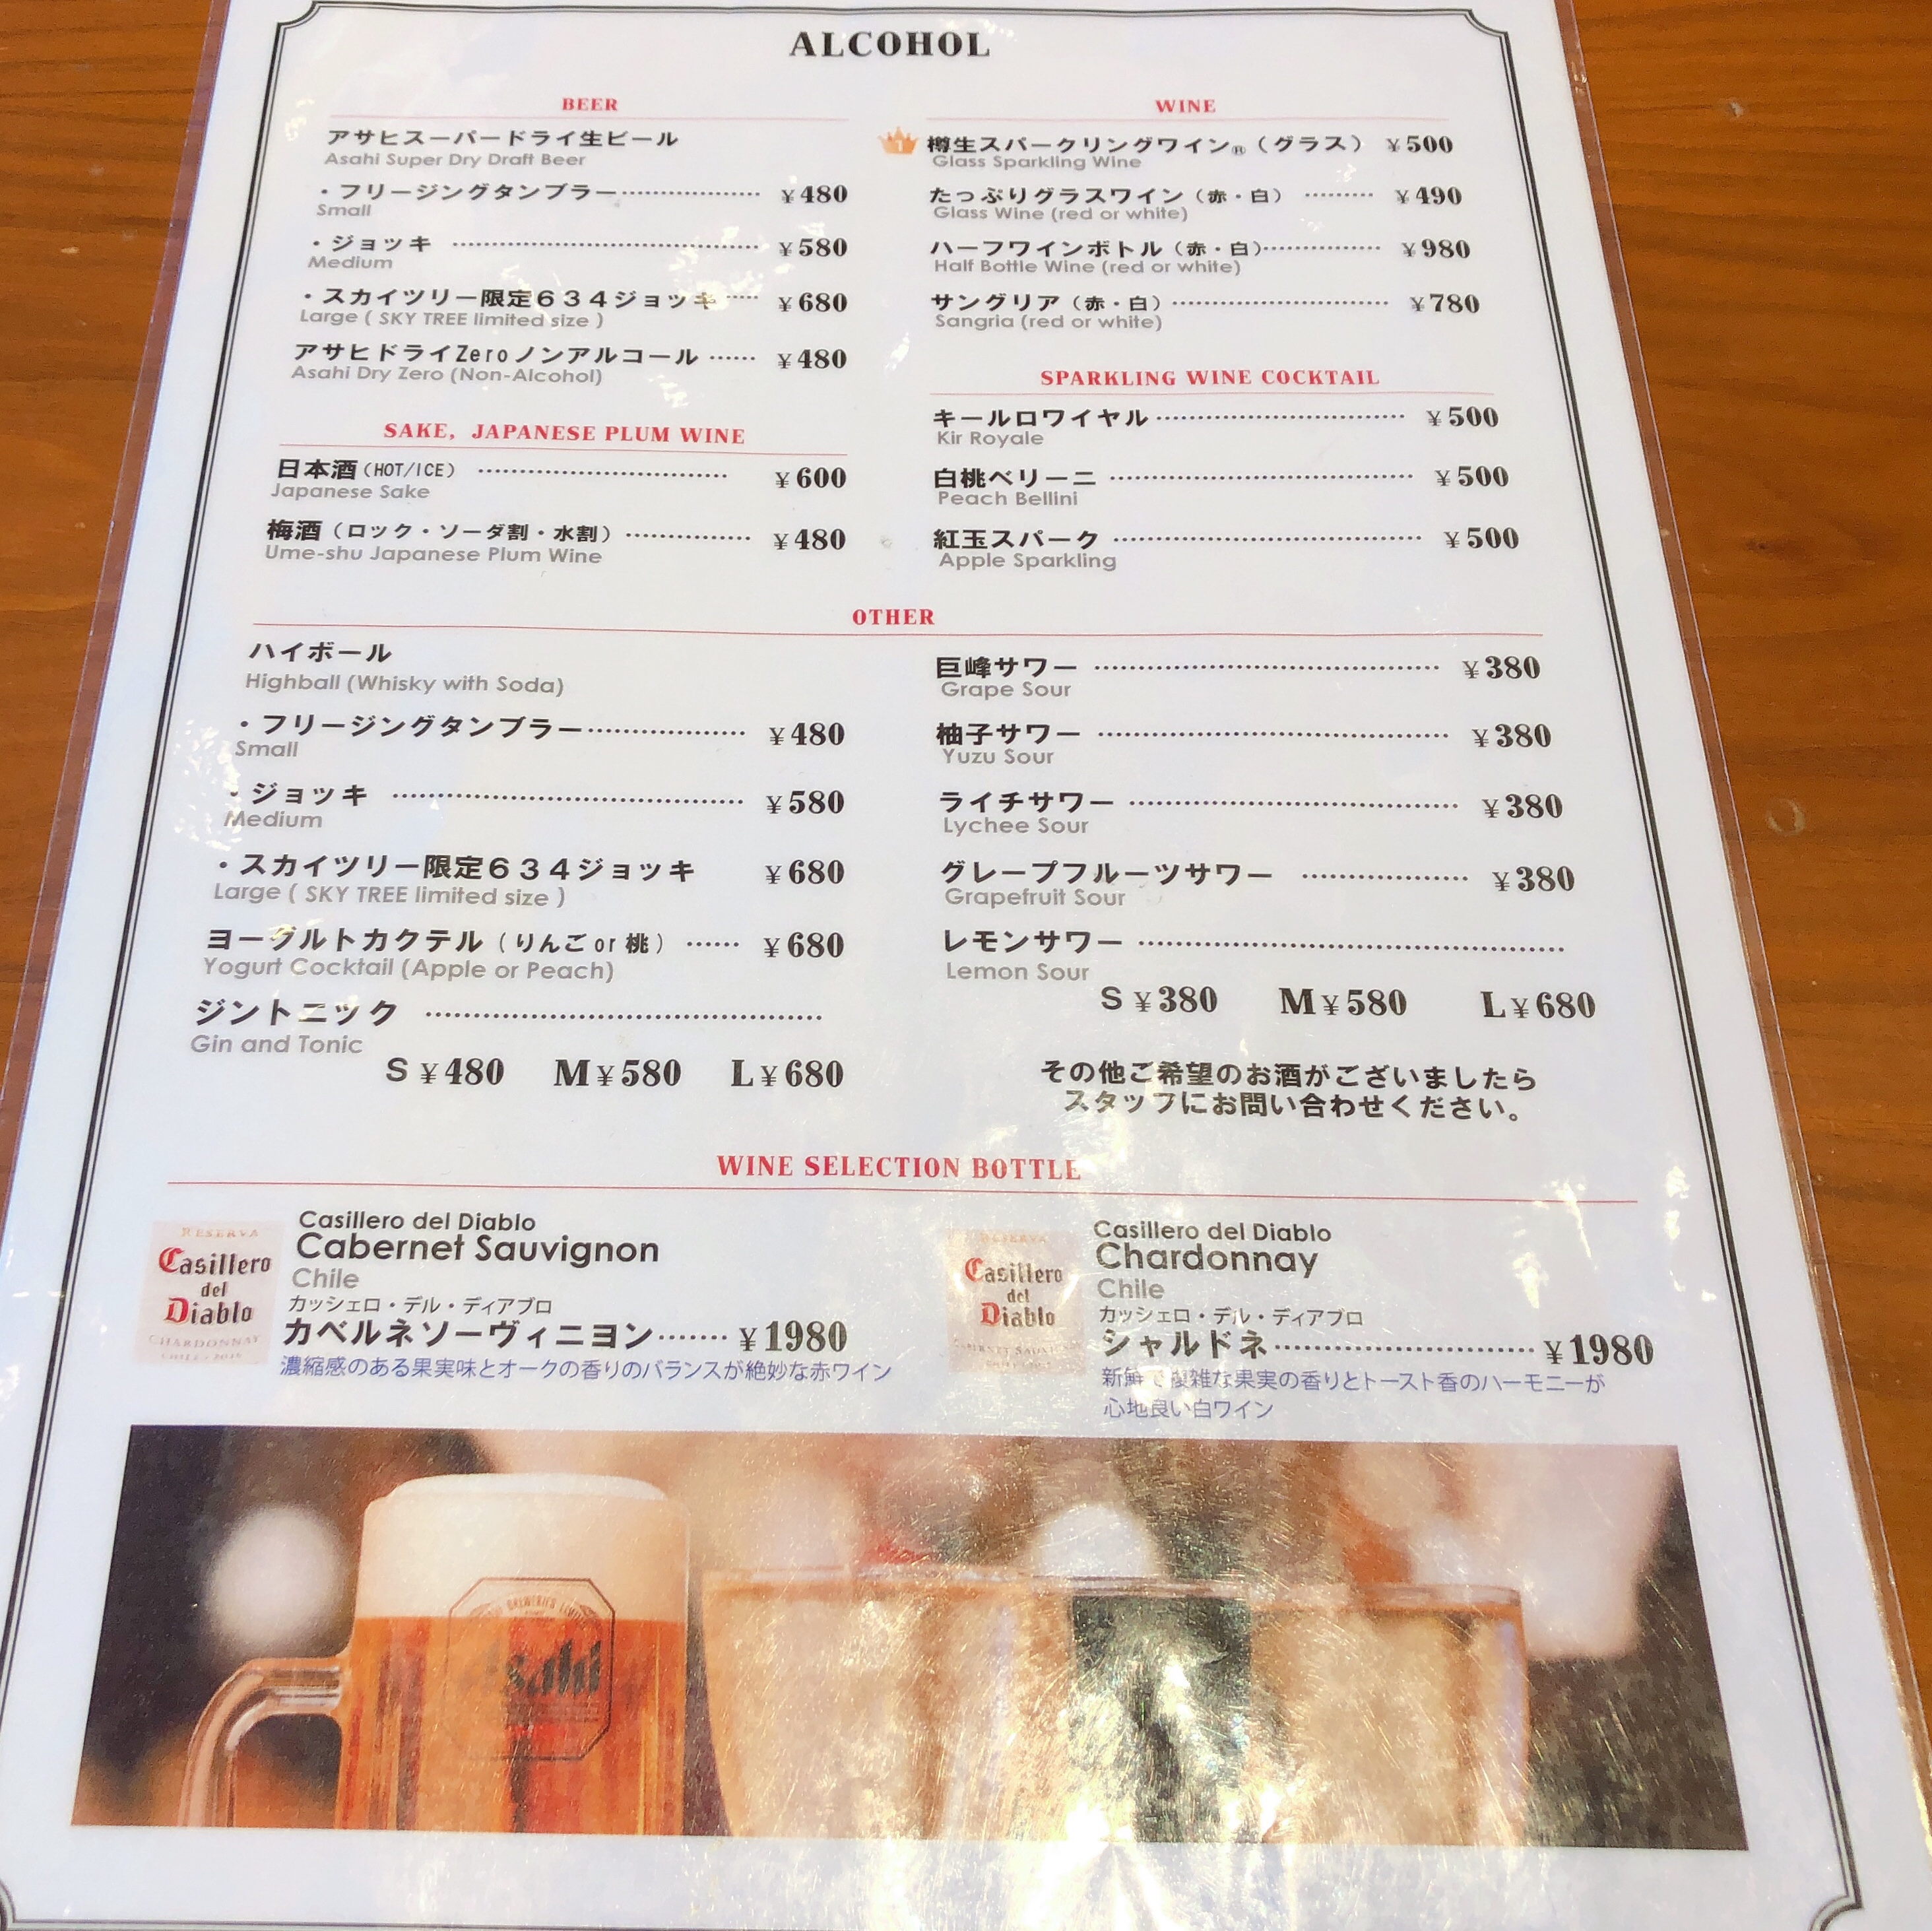 ALCOHOL
BEER
アサヒスーパードライ生ビール
Asahi Super Dry Draft Beer
・フリージングタンブラー……………… ¥480
Small
・ジョッキ ………………………………… ¥580
Medium
・スカイツリー限定634ジョッキ …… ¥680
Large ( SKY TREE limited size )
アサヒドライZeroノンアルコール …… ¥480
Asahi Dry Zero (Non-Alcohol)
SAKE, JAPANESE PLUM WINE
日本酒(HOT/ICE) ……………………… ¥600
Japanese Sake
梅酒（ロック・ソーダ割・水割）…………… ¥480
Ume-shu Japanese Plum Wine
WINE
1
樽生スパークリングワイン®（グラス） ¥500
Glass Sparkling Wine
たっぷりグラスワイン（赤・白） ……… ¥490
Glass Wine (red or white)
ハーフワインボトル（赤・白）………… ¥980
Half Bottle Wine (red or white)
サングリア（赤・白）…………………… ¥780
Sangria (red or white)
SPARKLING WINE COCKTAIL
キールロワイヤル……………………… ¥500
Kir Royale
白桃ベリーニ …………………………… ¥500
Peach Bellini
紅玉スパーク …………………………… ¥500
Apple Sparkling
OTHER
ハイボール
Highball (Whisky with Soda)
・フリージングタンブラー……………… ¥480
Small
・ジョッキ ………………………………… ¥580
Medium
・スカイツリー限定634ジョッキ ¥680
Large ( SKY TREE limited size )
ヨーグルトカクテル（りんごor桃） …… ¥680
Yogurt Cocktail (Apple or Peach)
ジントニック ……………………………………
Gin and Tonic
S ¥480 M ¥580 L ¥680
巨峰サワー ……………………………… ¥380
Grape Sour
柚子サワー ……………………………… ¥380
Yuzu Sour
ライチサワー …………………………… ¥380
Lychee Sour
グレープフルーツサワー ……………… ¥380
Grapefruit Sour
レモンサワー ……………………………………
Lemon Sour
S ¥380 M ¥580 L ¥680
その他ご希望のお酒がございましたら
スタッフにお問い合わせください。
WINE SELECTION BOTTLE
RESERVA
Casillero
del
Diablo
CHARDONNAY
Casillero del Diablo
Cabernet Sauvignon
Chile
カッシェロ・デル・ディアブロ
カベルネソーヴィニヨン……‥ ¥1980
濃縮感のある果実味とオークの香りのバランスが絶妙な赤ワイン
RESERVA
Casillero
del
Diablo
CABERNET SAUVIGNON
Casillero del Diablo
Chardonnay
Chile
カッシェロ・デル・ディアブロ
シャルドネ……………………… ¥1980
新鮮で複雑な果実の香りとトースト香のハーモニーが
心地良い白ワイン
Asahi